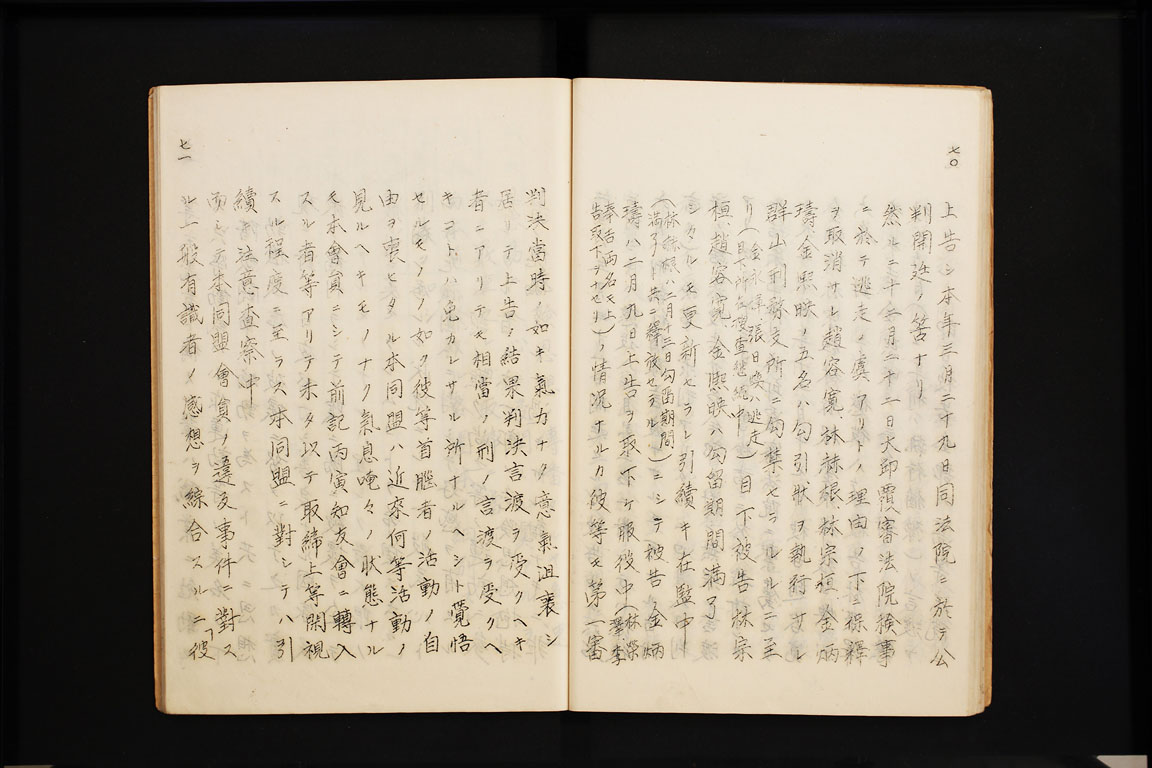 七〇
上告シ本年三月二十九日同法院ニ於テ公
判開廷ノ筈ナリ
然ルニ十二月二十二日大邱覆審法院検事
ニ於テ逃走ノ虞アリトノ理由ノ下ニ保釋
ヲ取消サレ趙容寛、林赫根、林宗桓、金炳
璹、金熙映ノ五名ハ勾引狀ヲ執行サレ
群山刑務支所ニ勾禁セラルルニ至
リ(金永輝、張日煥ハ逃走
目下所在捜査継続中)目下被告林宗
桓、趙容寛、金熙映ハ勾留期間満了
シタルモ更新セラレ引續キ在監中
(林赫根ハ二月十三日勾留期間
満了ト共ニ釋放セラル)ニシテ被告金炳
璹ハ二月九日上告ヲ取下ケ服役中(林榮澤、李
奉吉両名モ上
告取下ヲナセリ)ノ情况ナルカ彼等モ第一審
七一
判決當時ノ如キ氣力ナク意氣沮喪シ
居リテ上告ノ結果判決言渡ヲ受クヘキ
者ニアリテモ相當ノ刑ノ言渡ヲ受クヘ
キコトハ免カレサル所ナルヘシト覺悟
セルモノノ如ク彼等首腦者ノ活動ノ自
由ヲ喪ヒタル本同盟ハ近來何等活動ノ
見ルヘキモノナク氣息唵々ノ狀態ナル
モ本會員ニシテ前記丙寅知友會ニ轉入
スル者等アリテ未タ以テ取締上等閑視
スル程度ニ至ラス本同盟ニ對シテハ引
續キ注意査察中
而シテ本同盟會員ノ違反事件ニ對ス
ル一般有識者ノ感想ヲ綜合スルニ「彼